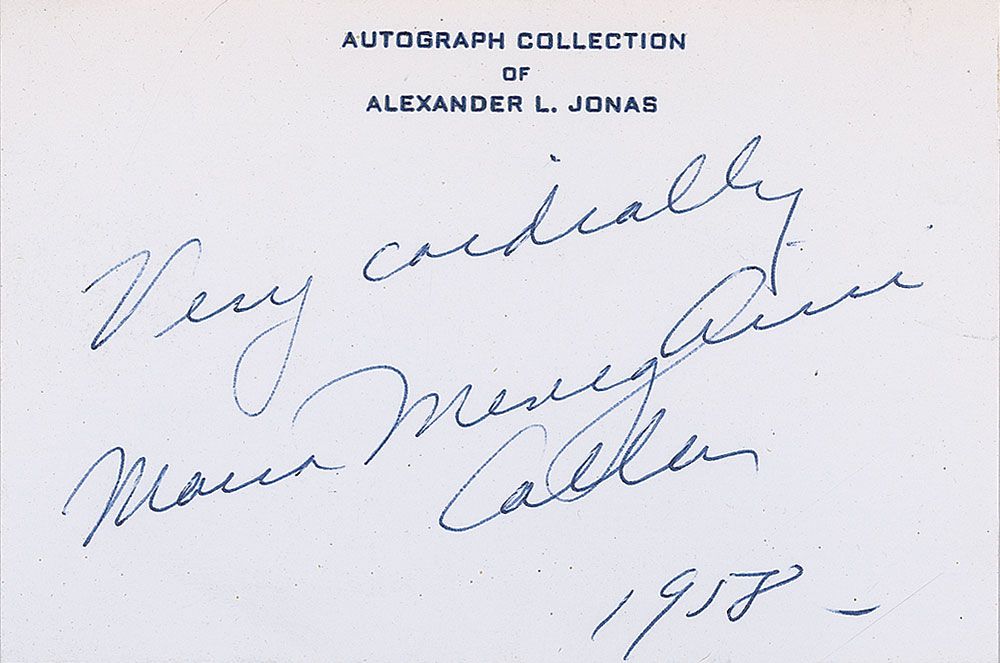 AUTOGRAPH COLLECTION
OF
ALEXANDER L. JONAS
Very cordially
Maria Meneghini
Callas
1958 –